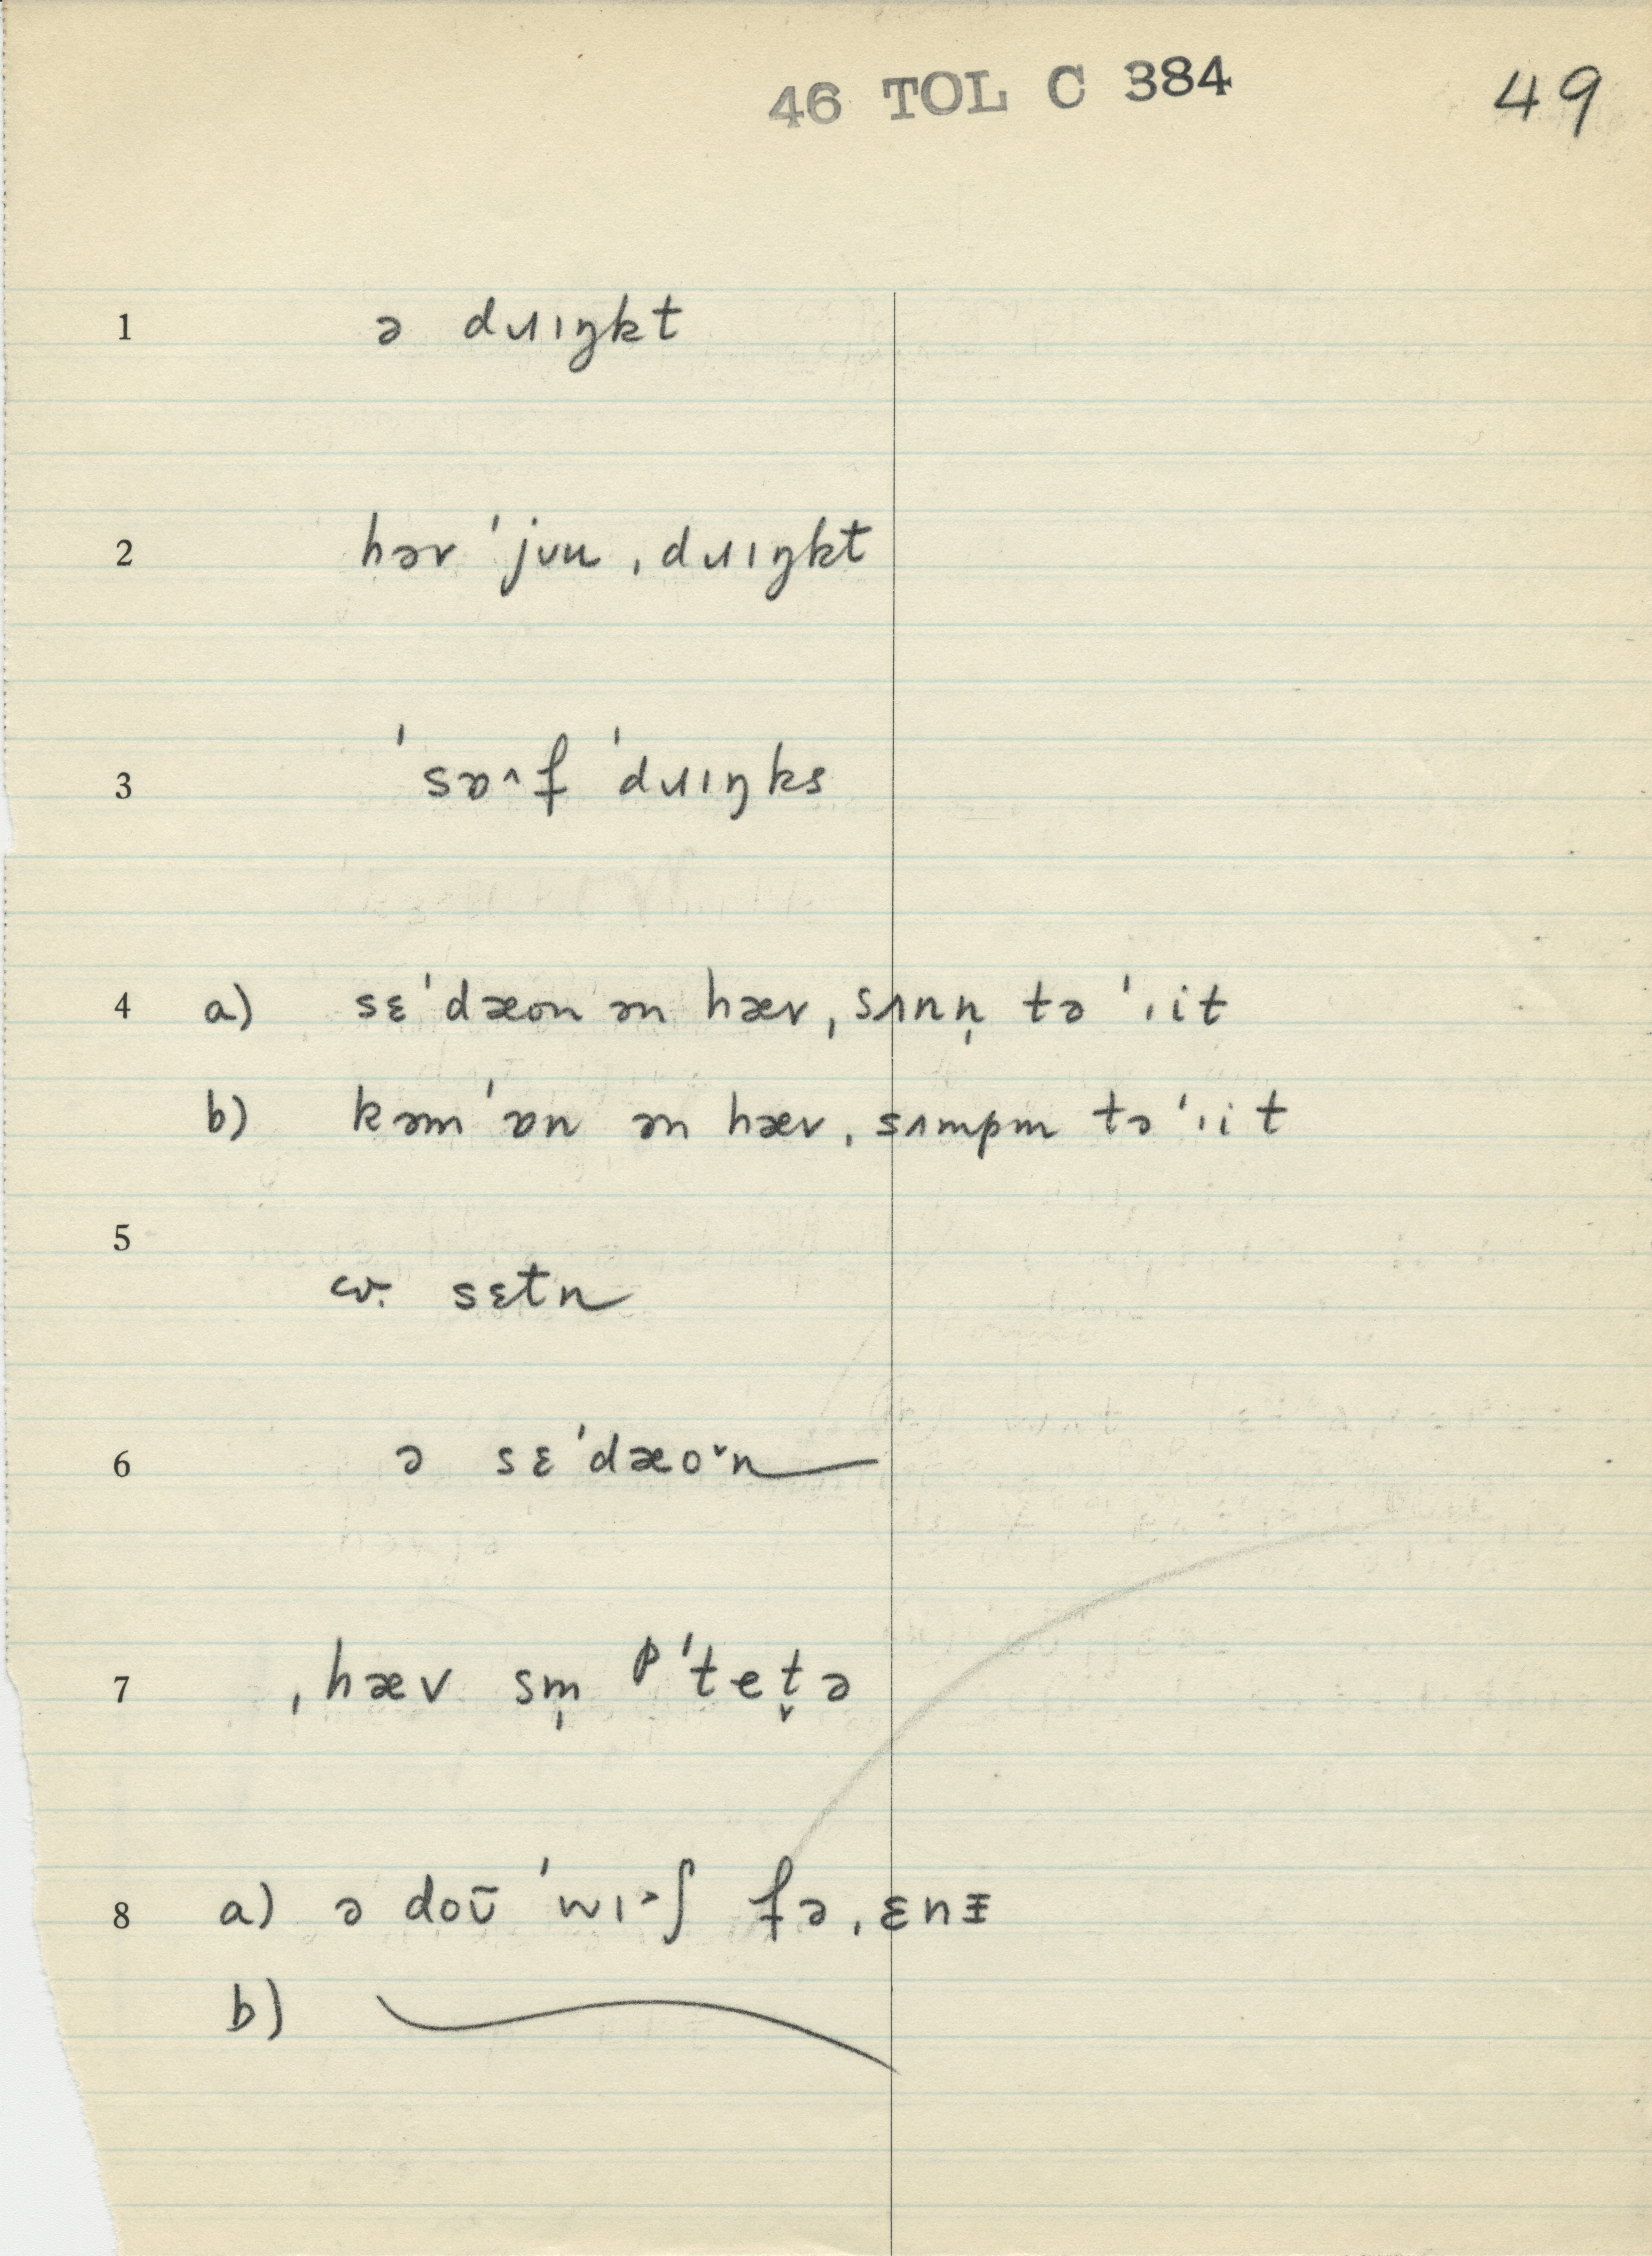 46 TOL C 384 49
1 ə dɹɪŋkt
2 həv ˈjʊu ˌdɹɪŋkt
3 ˈsɒ˄f ˈdɹɪŋks
4 a) sɛˈdæon ən hæv ˌsʌnn̩ təˈˌit
b) kəmˈɒn ən hæv ˌsʌmpm təˈˌit
5
cv. sɛtn
6 ə sɛˈdæo˅n
7 ˌhæv sm̩ pˈtet̬ə
8 a) ə doʊ̄ ˈwɪ˃ʃ fə ˌɛnɪ
b)